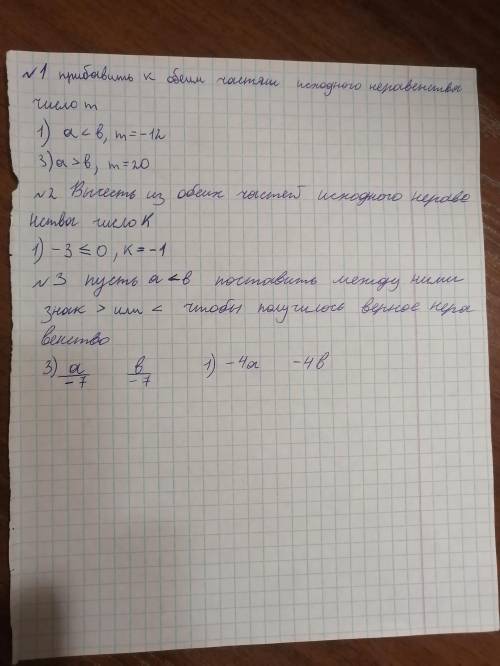 №1 прибавить к обеим частям исходного неравенства
число m
1) a < в, m = -12
3) a > в, m = 20
№2 Вычесть из обеих частей исходного нераве
нства число К
1) -3 ≤ 0, К = -1
№3 пусть a < в поставить между ними
знак > или < чтобы получилось верное нера
венство
3) a/-7 в/-7 1) -4a -4в